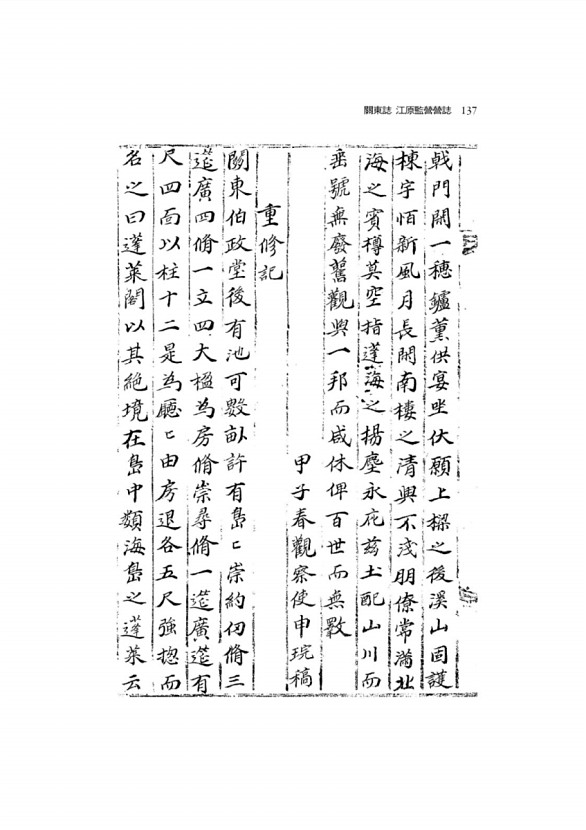 關東誌 江原監營營誌 137
戟門閙一穗鑪薰供宴坐伏願上樑之後溪山固護
棟宇恒新風月長閑南樓之清興不淺朋僚常滿北
海之賓樽莫空指蓬海之揚塵永庇玆土配山川而
垂號無廢舊觀與一邦而咸休俾百世而無斁
甲子春觀察使申琓稿
重修記
關東伯政堂後有池可數畝許有島〻崇約仞脩三
筵廣四脩一立四大楹為房脩崇尋脩一筵廣筵有
尺四面以柱十二是為廳〻由房退各五尺強揔而
名之曰蓬萊閣以其絶境在島中類海島之蓬萊云